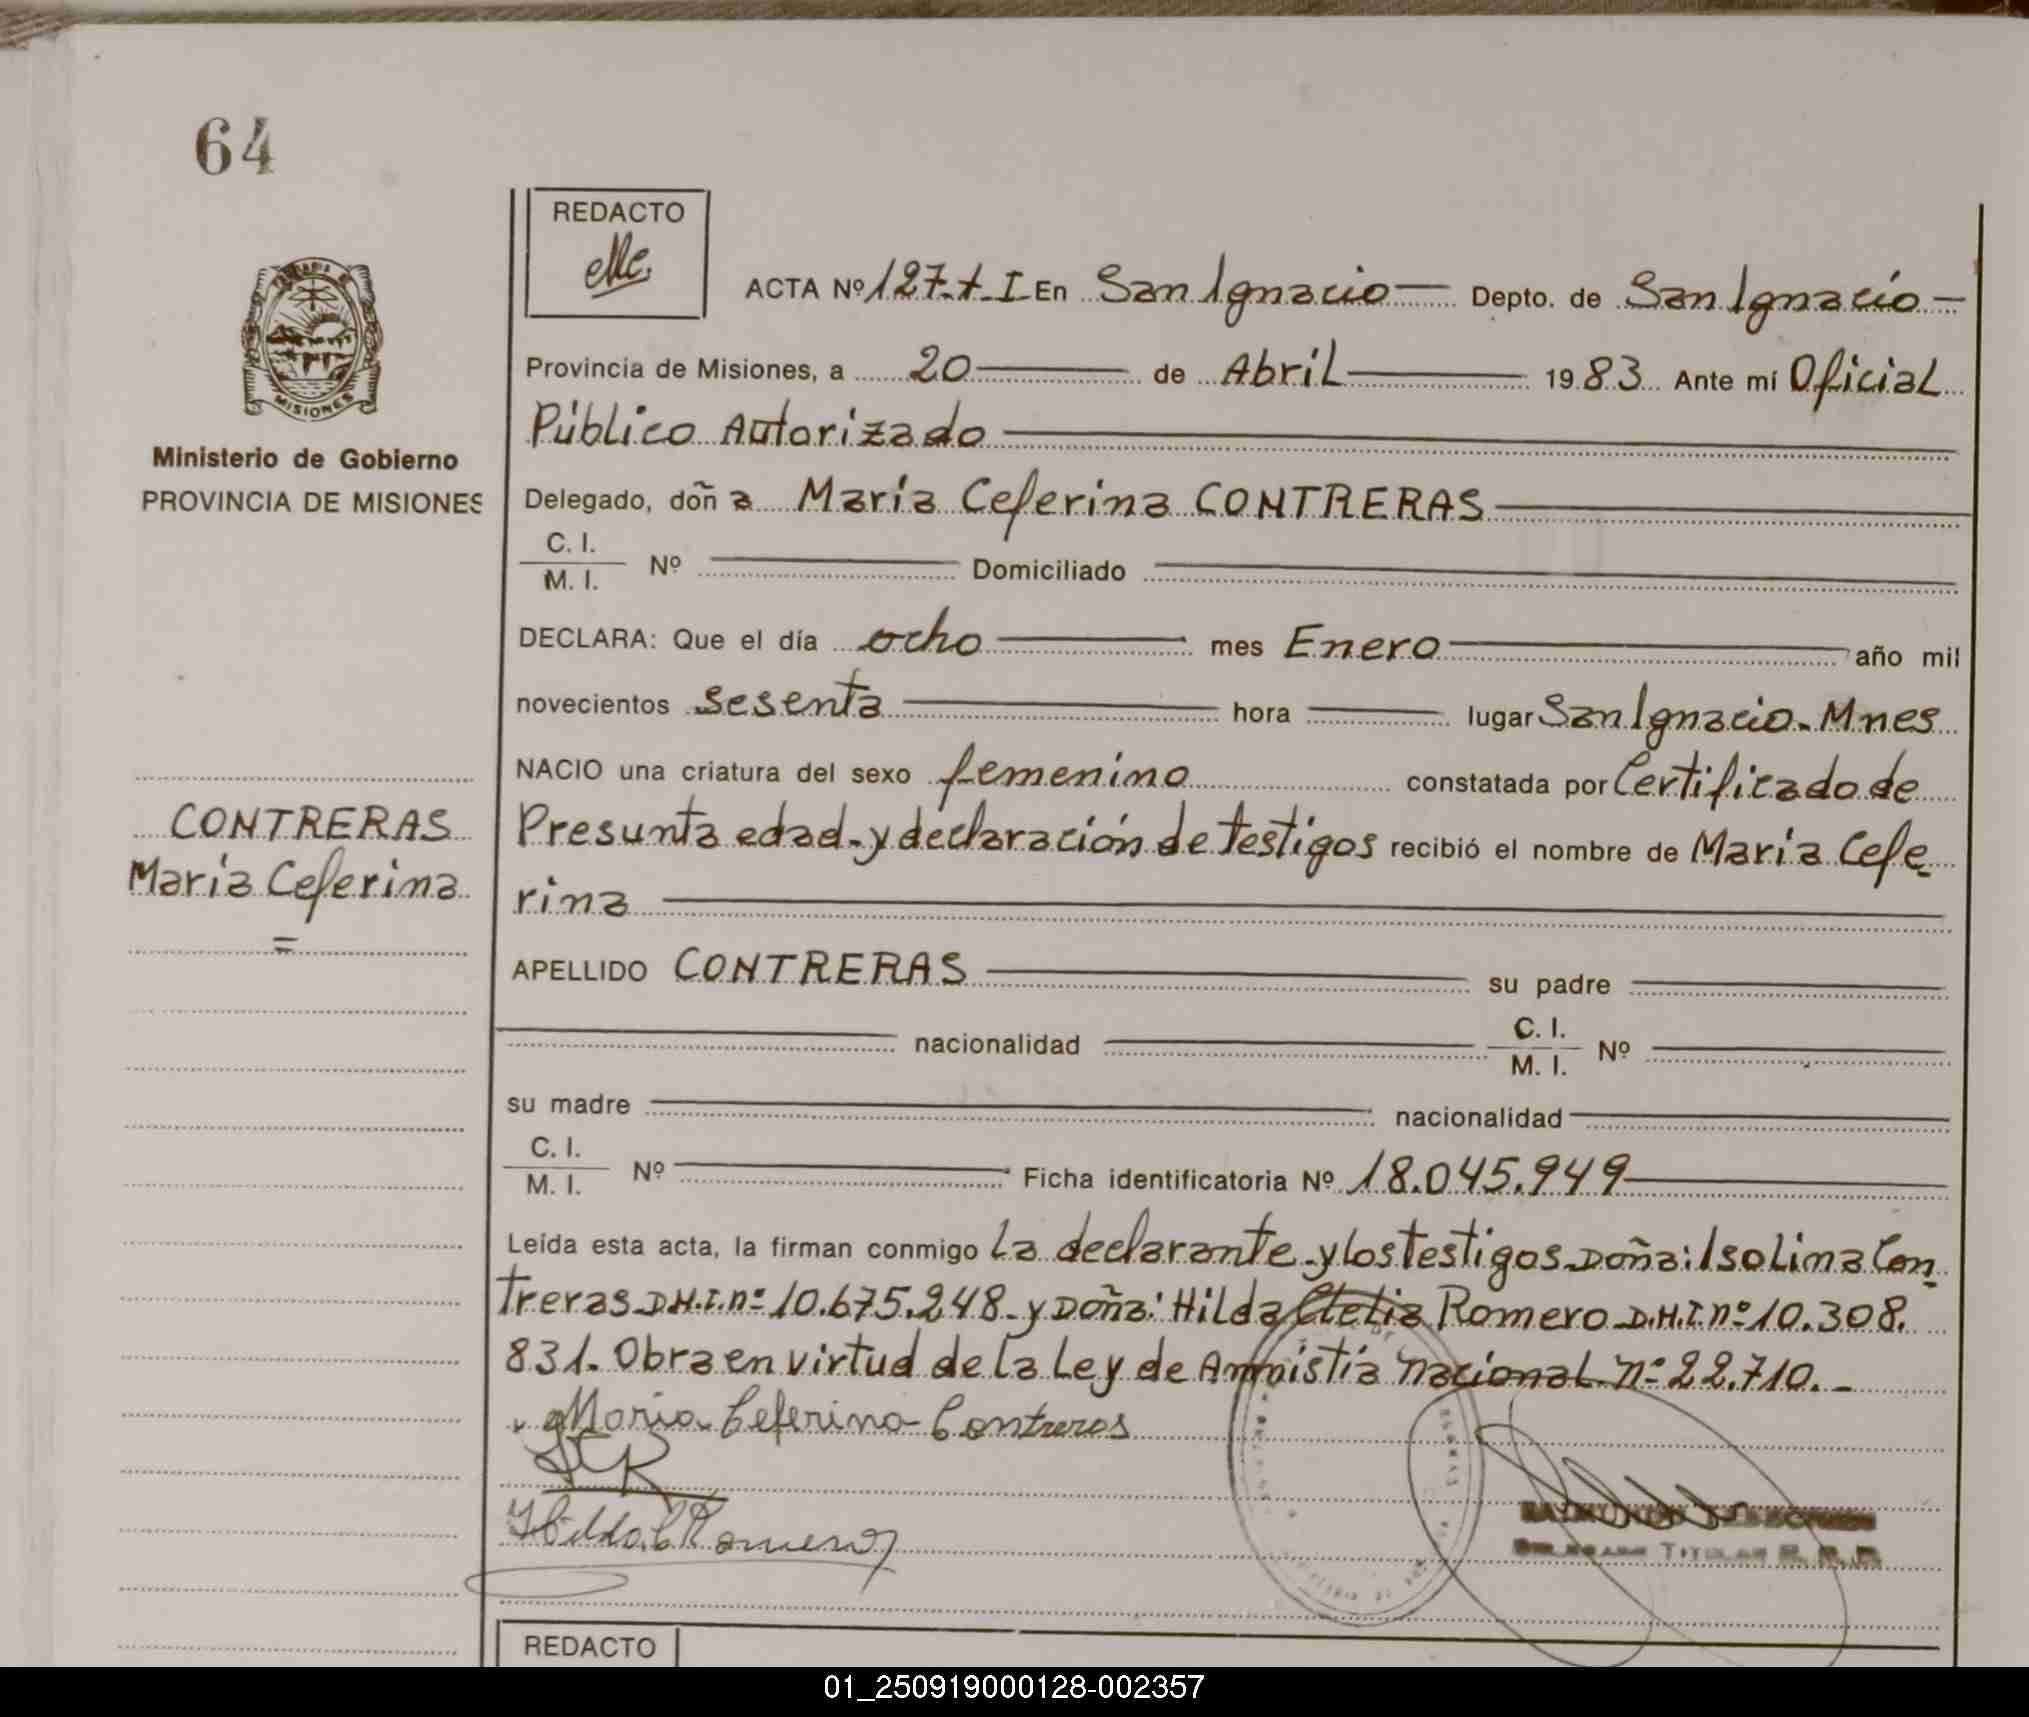 64
REDACTO
ACTA Nº 127-t-I En San Ignacio Depto. de San Ignacio
Provincia de Misiones, a 20 de Abril 1983 Ante mí Oficial
Público Autorizado
MISIONES
Ministerio de Gobierno
PROVINCIA DE MISIONES
Delegado, doña María Ceferina CONTRERAS
C. I.
M. I. Nº Domiciliado
DECLARA: Que el día ocho mes Enero año mil
novecientos sesenta hora lugar San Ignacio - Mnes
NACIO una criatura del sexo femenino constatada por Certificado de
Presunta edad - y declaración de testigos recibió el nombre de María Cefe-
rina
CONTRERAS
María Ceferina
=
APELLIDO CONTRERAS su padre
nacionalidad C. I.
M. I. Nº
su madre nacionalidad
C. I.
M. I. Nº Ficha identificatoria Nº 18.045.949
Leída esta acta, la firman conmigo la declarante - y los testigos Doña: Isolina Con-
treras D.N.I. nº 10.675.248 - y Doña: Hilda Clelia Romero D.N.I. nº 10.308.
831. Obra en virtud de la Ley de Amnistía nacional nº 22.710. -
Maria Ceferina Contreras
ICR
Hilda C Romero
TITULAR
REDACTO
01_250919000128-002357